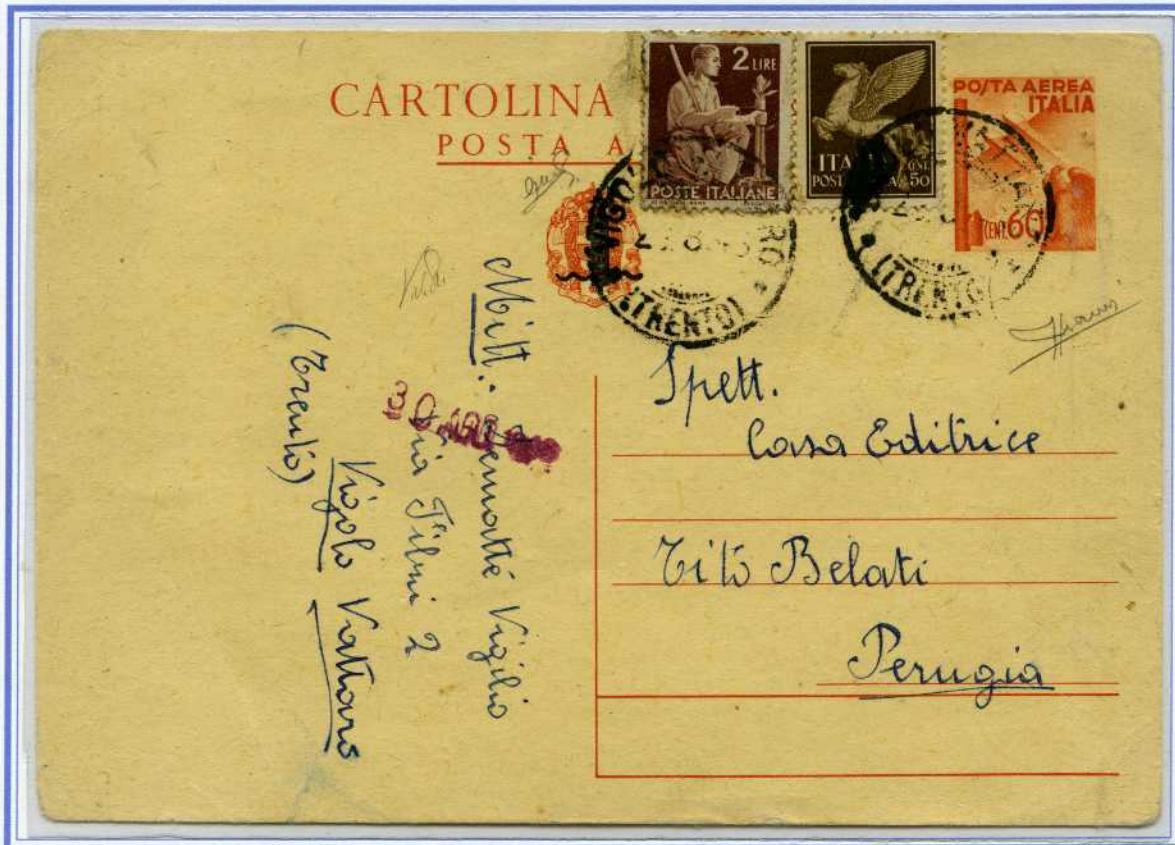 CARTOLINA
POSTA A
2 LIRE
POSTE ITALIANE
ITALIA
POSTA AEREA
50
POSTA AEREA
ITALIA
CENT. 60
VIGOLO VATTARO
(TRENTO)
(TRENTO)
Spett.
Casa Editrice
Tito Belati
Perugia
Mitt.: Demattè Vigilio
Via Filzi 2
Vigolo Vattaro
(Trento)
30